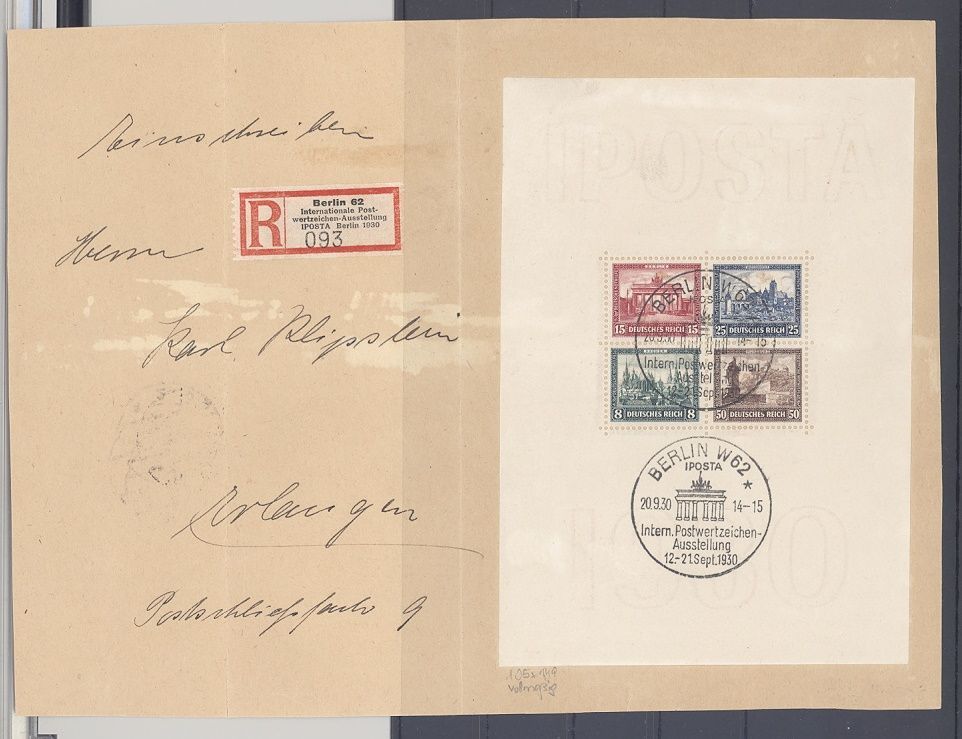 Einschreiben
R
Berlin 62
Internationale Post-
wertzeichen-Ausstellung
IPOSTA Berlin 1930
093
Herrn
Karl Klipstein
Erlangen
Postschließfach 9
IPOSTA
15 DEUTSCHES REICH 15
25 DEUTSCHES REICH 25
8 DEUTSCHES REICH 8
50 DEUTSCHES REICH 50
BERLIN W62
IPOSTA
20.9.30 14-15
Intern. Postwertzeichen-
Ausstellung
12-21.Sept.1930
BERLIN W62
IPOSTA
20.9.30 14-15
Intern. Postwertzeichen-
Ausstellung
12-21.Sept.1930
105x149
vollmaßig